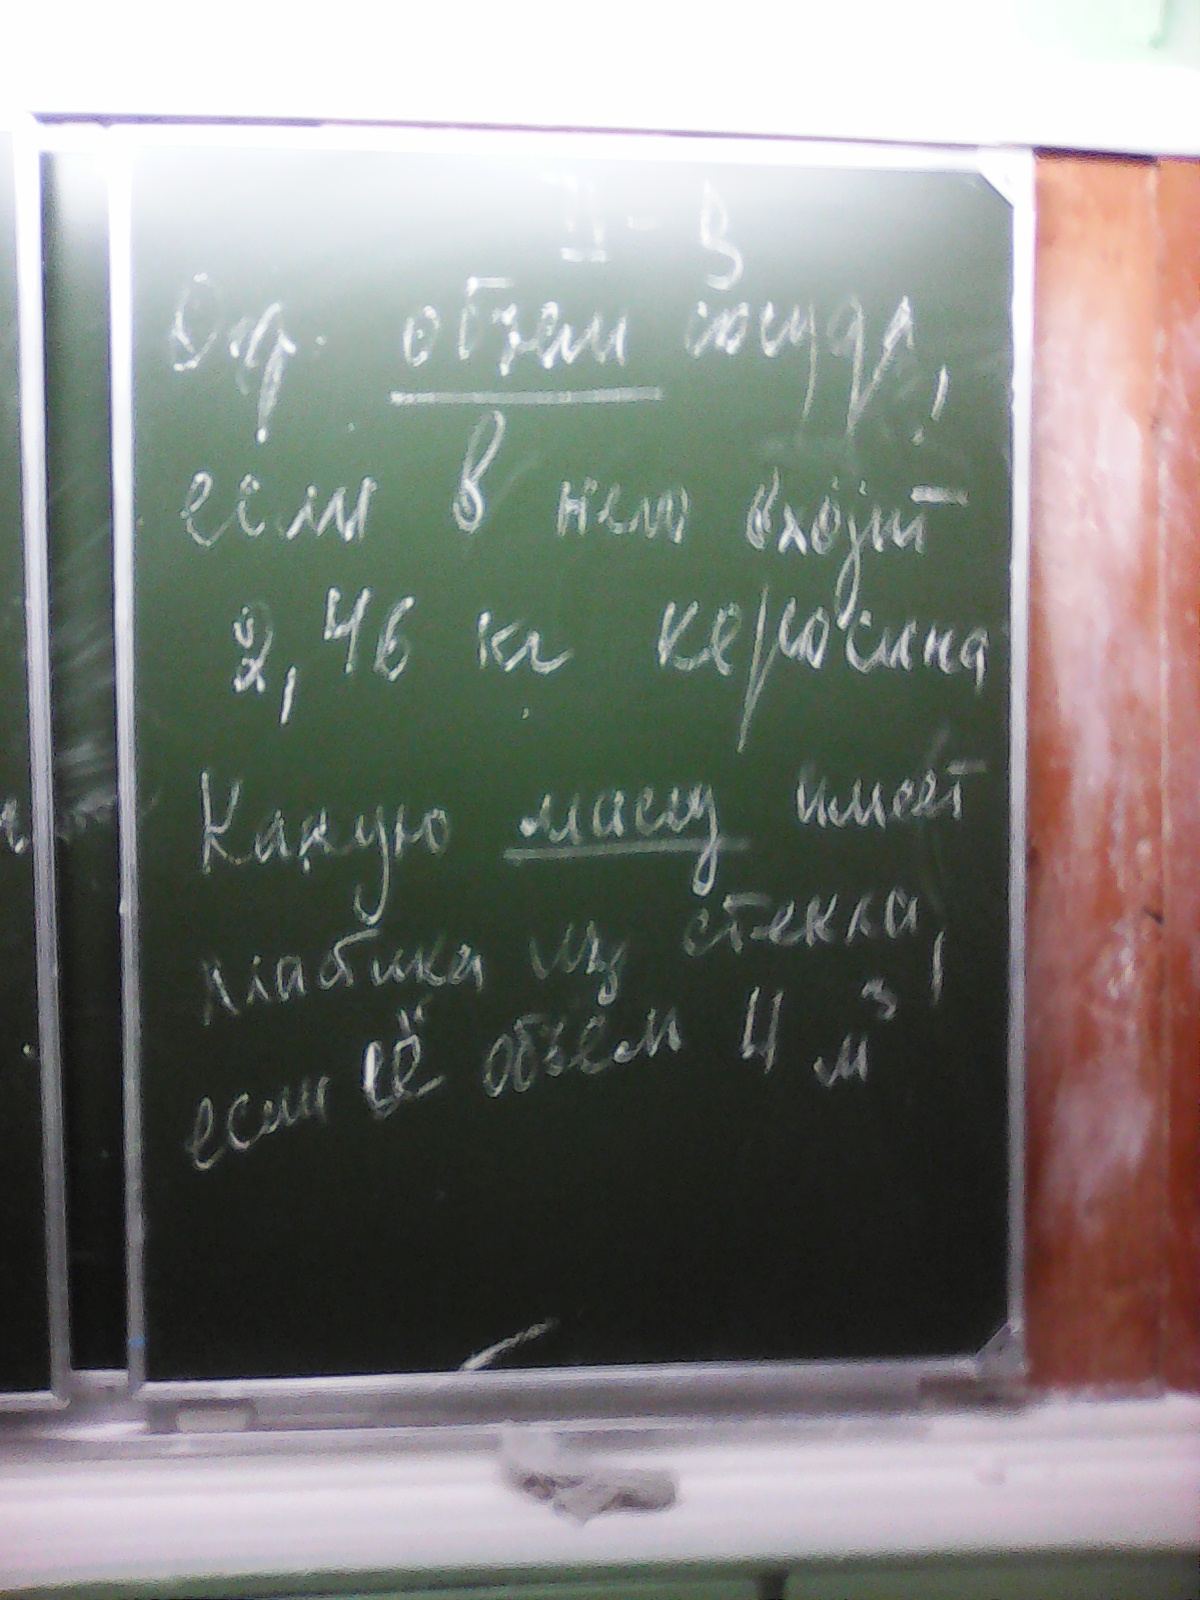 II - В
Опр. объем сосуда,
если в него входит
2,46 кг керосина
Какую массу имеет
глабина из стекла,
если её объём 4 м³